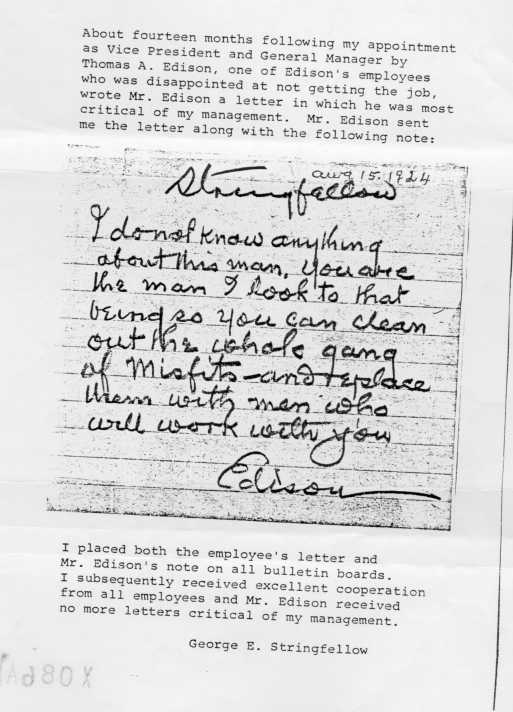 About fourteen months following my appointment
as Vice President and General Manager by
Thomas A. Edison, one of Edison's employees
who was disappointed at not getting the job,
wrote Mr. Edison a letter in which he was most
critical of my management.  Mr. Edison sent
me the letter along with the following note:
Aug 15. 1924
Stringfellow
I do not know anything
about this man, you are
the man I look to that
being so you can clean
out the whole gang
of Misfits—and replace
them with men who
will work with you
Edison
I placed both the employee's letter and
Mr. Edison's note on all bulletin boards.
I subsequently received excellent cooperation
from all employees and Mr. Edison received
no more letters critical of my management.
George E. Stringfellow